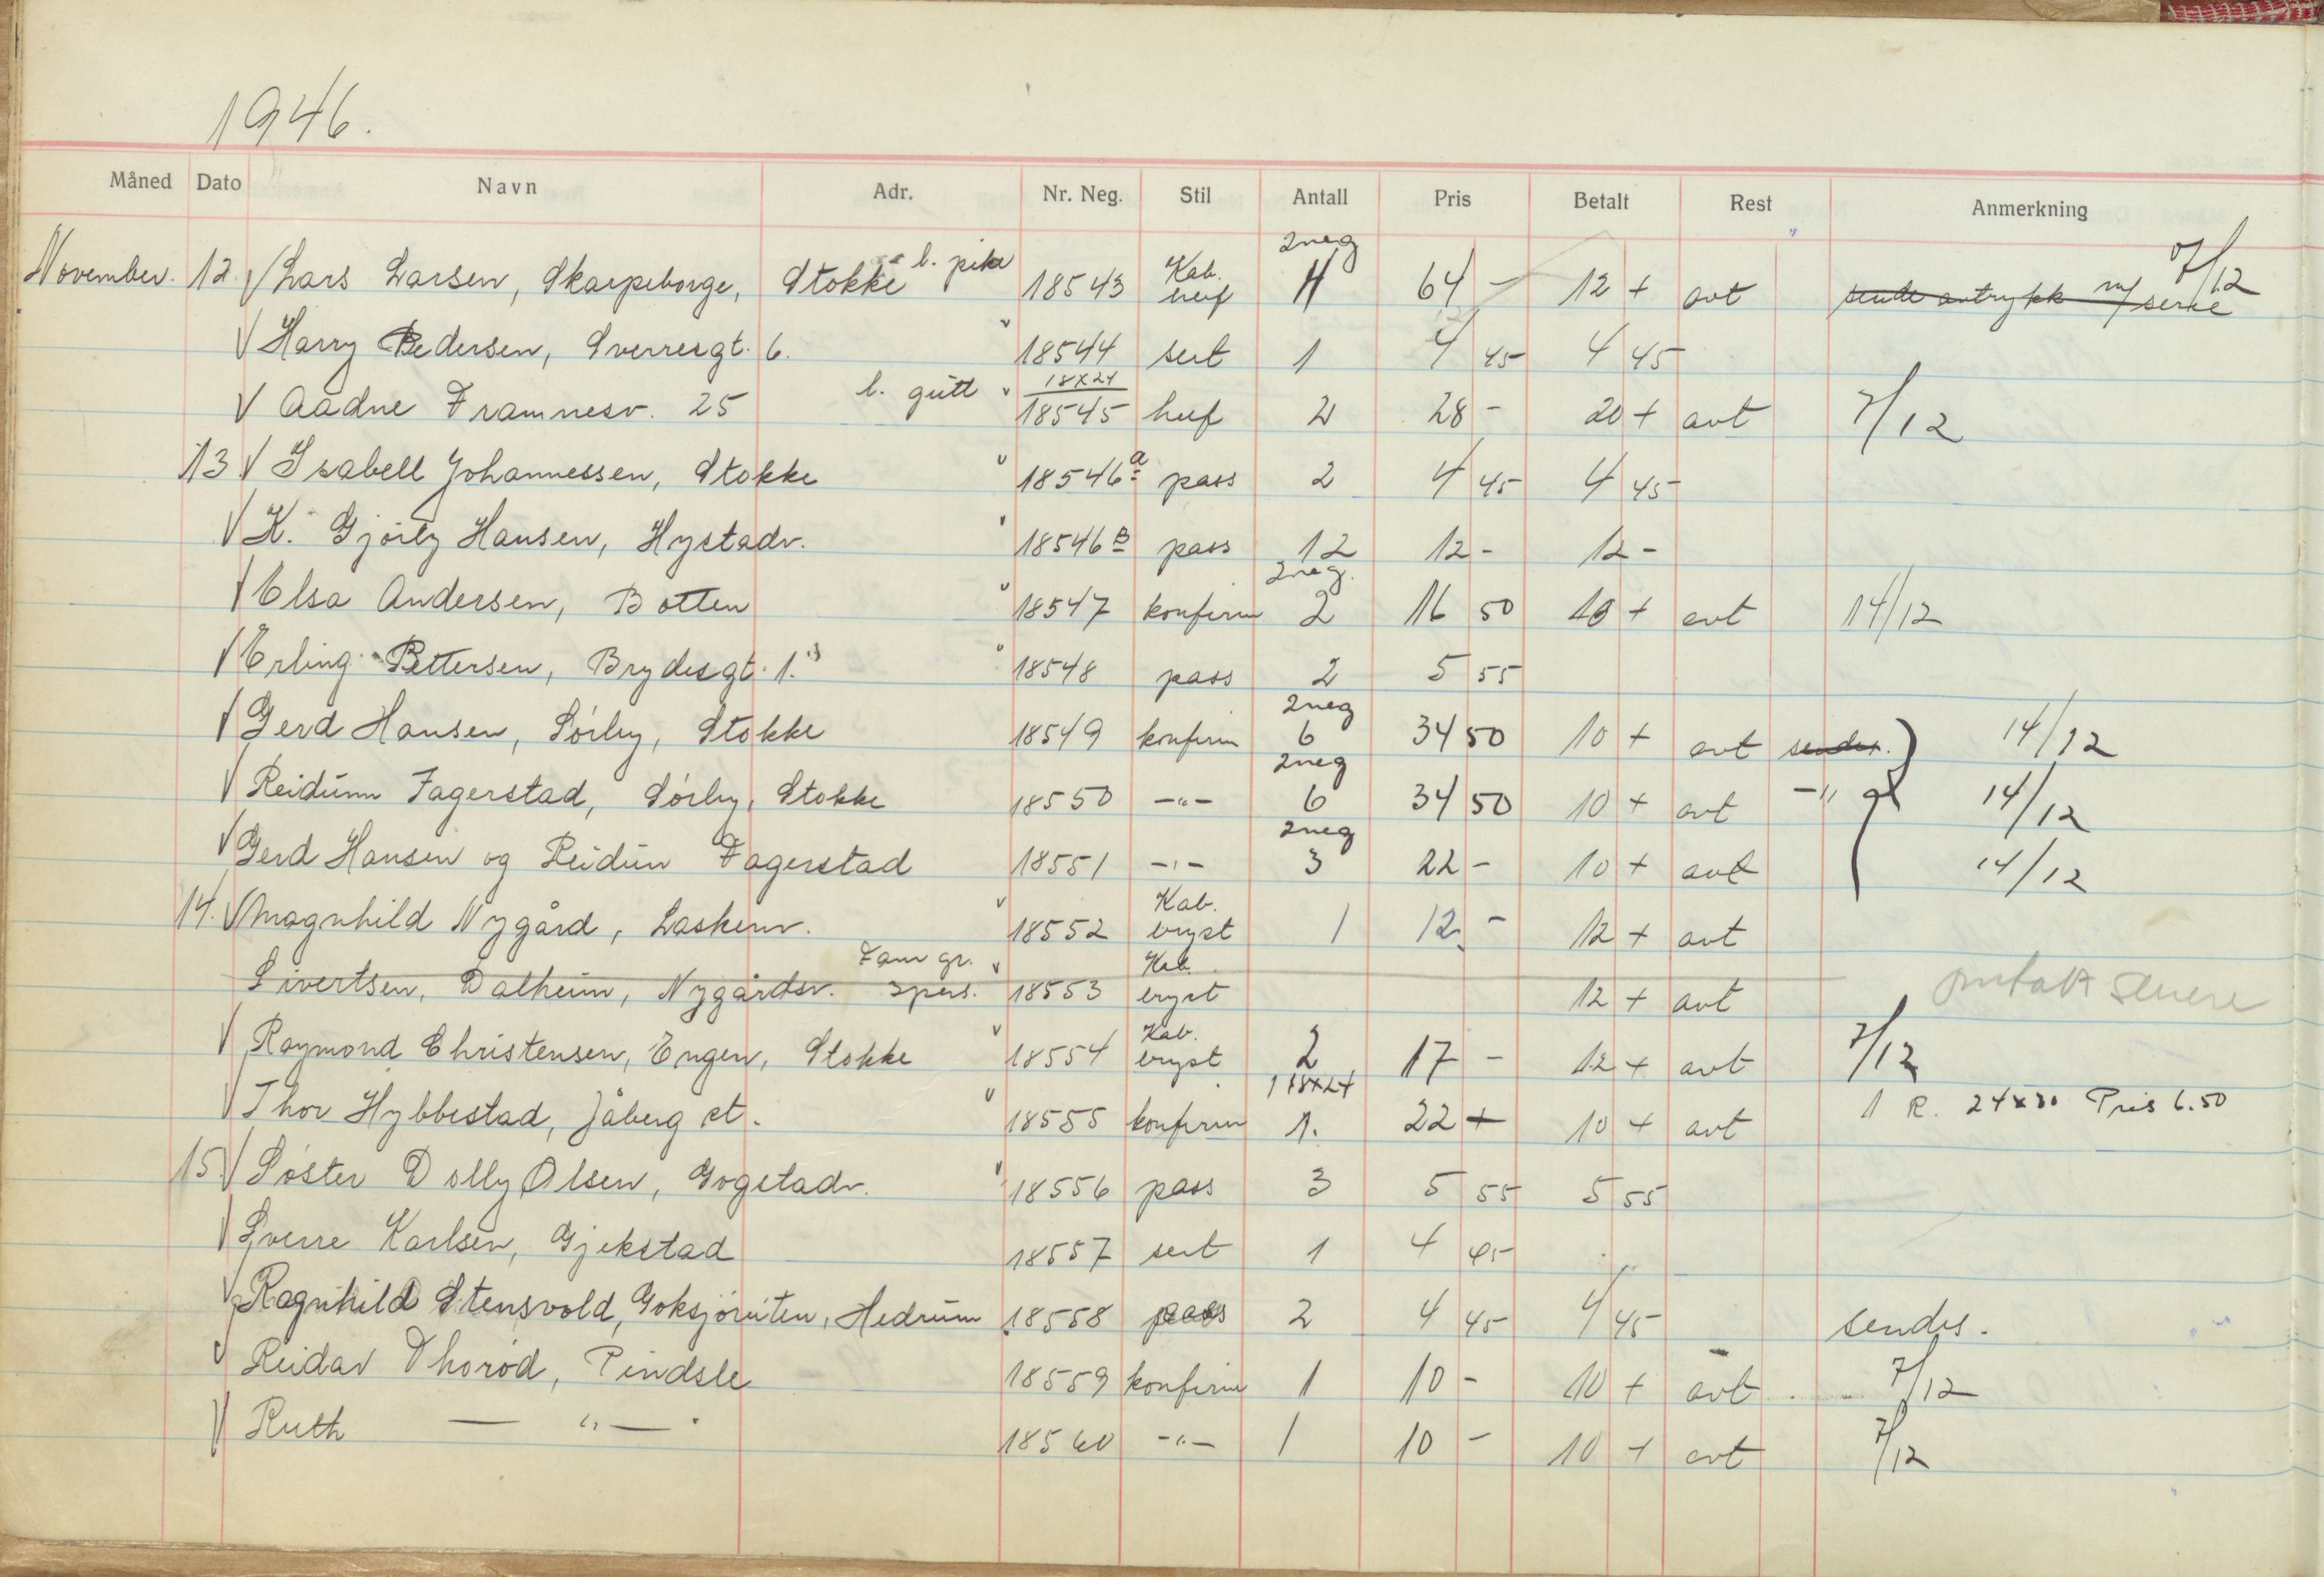 1946.
Måned Dato Navn Adr. Nr. Neg. Stil Antall Pris Betalt Rest Anmerkning
November. 12. V Lars Larsen, Skarpeborge, Stokke l. pike 18543 Kab. 2neg 64 - 12 + avt sende avtrykk m/ serie 7/12
V Harry Pedersen, Sverresgt. 6. " 18544 sert 1 4 45 4 45
V Aadne Framnesv. 25 l. gutt " 18x24 18545 huf 2 28 - 20 + avt 7/12
13 V Isabell Johannessen, Stokke " 18546a pass 2 4 45 4 45
V K. Gjørly Hansen, Hystadv. " 18546B pass 12 12 - 12 -
V Elsa Andersen, Botten " 18547 konfirm 2neg. 2 16 50 10 + avt 14/12
V Erling Pettersen, Brydesgt. 1. " 18548 pass 2 5 55
V Gerd Hansen, Sørby, Stokke 18549 konfirm 2neg 6 34 50 10 + avt sendes. ) 14/12
V Reidunn Fagerstad, Sørby, Stokke 18550 -"- 2neg 6 34 50 10 + avt -" 14/12
V Gerd Hansen og Reidun Fagerstad 18551 -"- 2neg 3 22 - 10 + avt 14/12
14. V Magnhild Nygård, Laskenv. " 18552 Kab. bryst 1 12 - 12 + avt
Sivertsen, Dalheim, Nygårdsv. Fam gr. 3pers. " 18553 Kab. bryst 12 + avt omtatt senere
V Raymond Christensen, Engen, Stokke " 18554 Kab. bryst 2 17 - 12 + avt 7/12
V Thor Hybbestad, Jåberg st. " 18555 konfirm 1 18x24 1. 22 + 10 + avt 1 R. 24x30 Pris 6.50
15. V Søster Dolly Olsen, Gogstadv. " 18556 pass 3 5 55 5 55
V Sverre Karlsen, Gjekstad 18557 sert 1 4 45
V Ragnhild Stensvold, Goksjøruten, Hedrum 18558 pass 2 4 45 4 45 sendes.
V Reidar Thorød, Pindsle 18559 konfirm 1 10 - 10 + avt 7/12
V Ruth — " — 18560 -"- 1 10 - 10 + avt 7/12